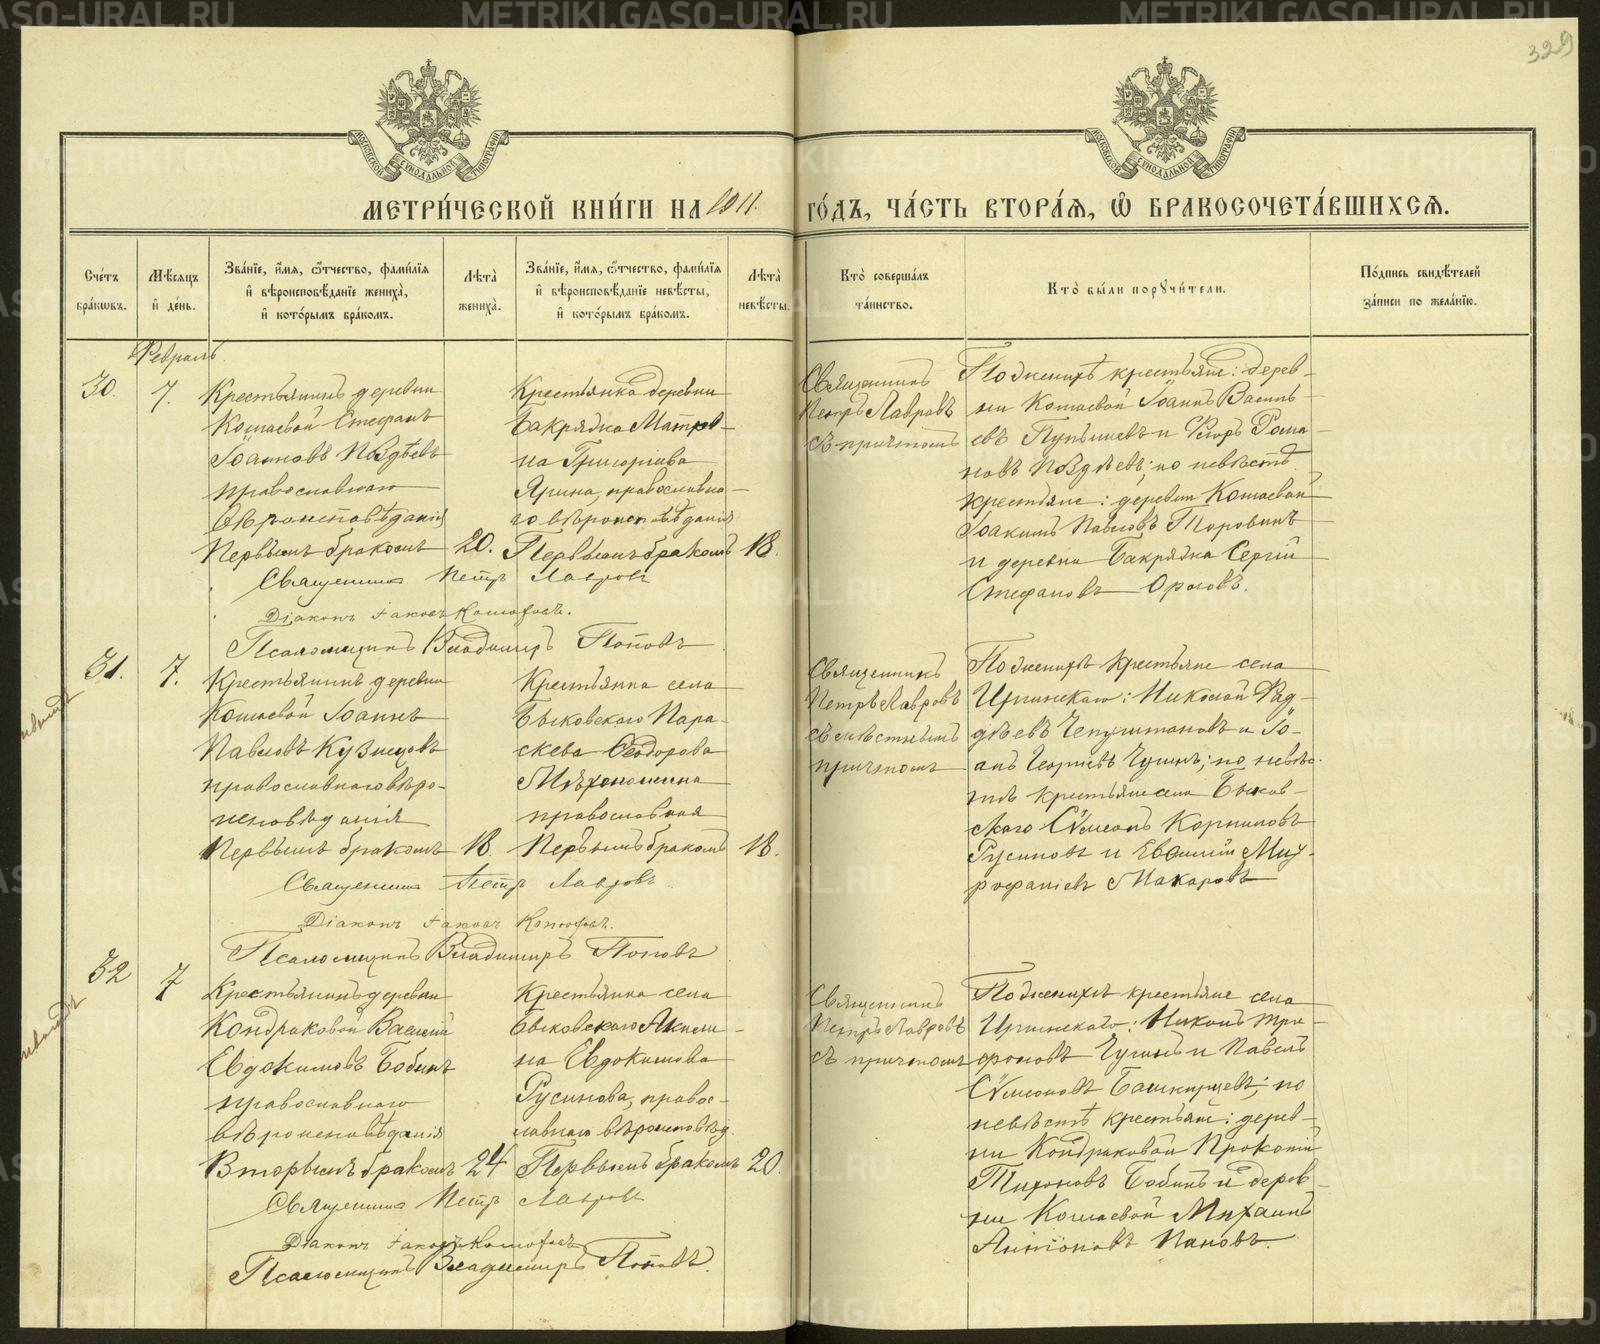 329
МЕТРИ́ЧЕСКОЙ КНИ́ГИ НА 1911. ГО́ДЪ, ЧА́СТЬ ВТОРА́Я, Ѽ БРАКОСОЧЕТА́ВШИХСЯ.
Сче́тъ бра́кѡвъ.
Мѣ́сяцъ и҆ де́нь.
Зва́нїе, и҆́мя, ѻ҆́тчество, фами́лїя и҆ вѣроисповѣ́данїе жениха̀, и҆ кото́рымъ бра́комъ.
Лѣта̀ жениха̀.
Зва́нїе, и҆́мя, ѻ҆́тчество, фами́лїя и҆ вѣроисповѣ́данїе невѣ́сты, и҆ кото́рымъ бра́комъ.
Лѣта̀ невѣ́сты.
Кто̀ соверша́лъ та́инство.
Кто̀ бы́ли порꙋчи́тели.
По́дпись свидѣ́телей за́писи по жела́нїю.
Февраль.
30.
7.
Крестьянинъ деревни
Кошаевой Стефанъ
Іоанновъ Поздѣевъ
православнаго
вѣроисповѣданія
Первымъ бракомъ
20.
Крестьянка деревни
Бакряжа Матрев-
на Григорьева
Ярина, православна-
го вѣроисповѣданія
Первымъ бракомъ
18.
Священникъ
Петръ Лавровъ
съ причтомъ
По женихѣ крестьяне: дерев-
ни Кошаевой Іоаннъ Василь-
евъ Пупышевъ и Ѳедоръ Рома-
новъ Поздѣевъ; по невѣстѣ
крестьяне: деревни Кошаевой
Іоакимъ Павловъ Торовинъ
и деревни Бакряжа Сергій
Стефановъ Орловъ.
Священникъ Петръ Лавровъ
Діаконъ Іаковъ
Псаломщикъ Владимиръ Поповъ
31.
7.
Крестьянинъ деревни
Кошаевой Іоаннъ
Павловъ Кузнецовъ
православнаго вѣро-
исповѣданія
Первымъ бракомъ
18.
Крестьянка села
Быковскаго Пара-
скева Ѳеодорова
Мѣхоношина
православная
Первымъ бракомъ
18.
Священникъ
Петръ Лавровъ
съ мѣстнымъ
причтомъ
По женихѣ крестьяне села
Иргинскаго: Николай Фад-
дѣевъ Чепуштановъ и Іо-
аннъ Георгіевъ Чугинъ; по невѣс-
тѣ крестьяне села Быков-
скаго Сѵмеонъ Корниловъ
Русиновъ и Евѳимій Мит-
рофаніевъ Макаровъ
Священникъ Петръ Лавровъ
Діаконъ Іаковъ
Псаломщикъ Владимиръ Поповъ
32
7
Крестьянинъ деревни
Кондраковой Василій
Евдокимовъ Бобинъ
православнаго
вѣроисповѣданія
Вторымъ бракомъ
24
Крестьянка села
Быковскаго Акили-
на Евдокимова
Русинова, правос-
лавнаго вѣроисповѣд.
Первымъ бракомъ
20.
Священникъ
Петръ Лавровъ
съ причтомъ
По женихѣ крестьяне села
Иргинскаго: Никонъ Три-
фоновъ Чугинъ и Павелъ
Сѵмеоновъ Башкирцевъ; по
невѣстѣ крестьяне: дерев-
ни Кондраковой Прокопій
Тихоновъ Бобинъ и дерев-
ни Кошаевой Михаилъ
Антоновъ Пановъ.
Священникъ Петръ Лавровъ
Діаконъ Іаковъ
Псаломщикъ Владимиръ Поповъ.
METRIKI.GASO-URAL.RU